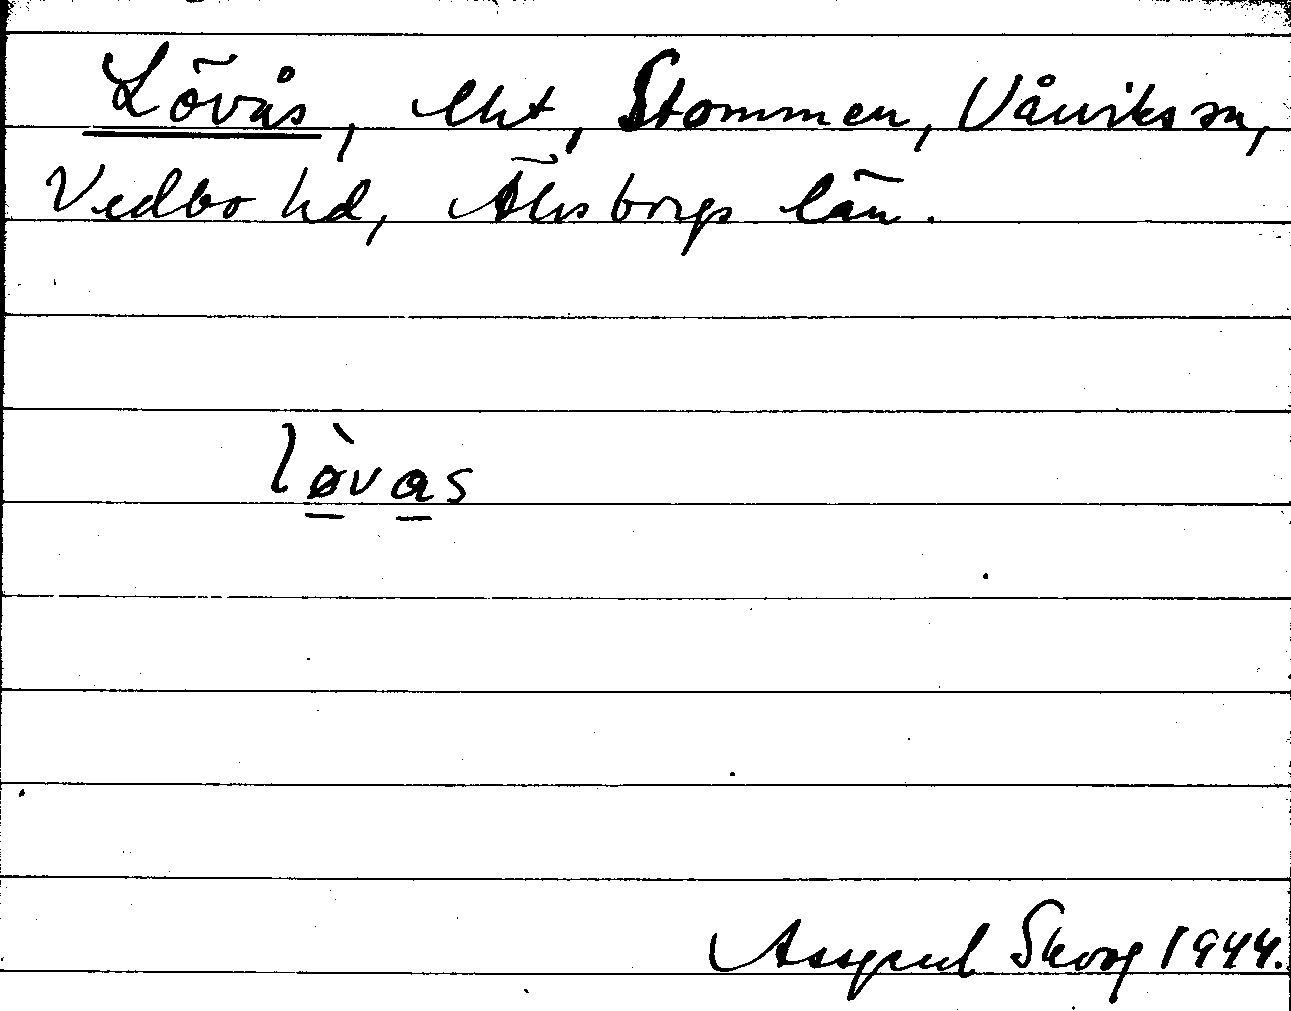 Lövås, lht, Stommen, Vårviks sn,
Vedbo hd, Älvsborgs län.
lø̀vas
Assgrud Skog 1944.